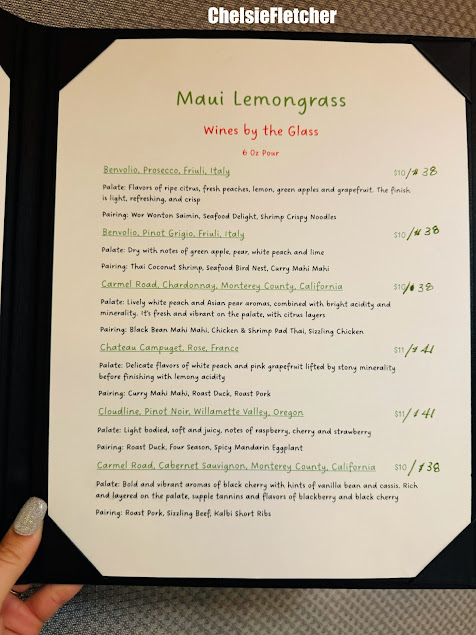 ChelsieFletcher
Maui Lemongrass
Wines by the Glass
6 Oz Pour
Benvolio, Prosecco, Friuli, Italy $10/$38
Palate: Flavors of ripe citrus, fresh peaches, lemon, green apples and grapefruit. The finish
is light, refreshing, and crisp
Pairing: Wor Wonton Saimin, Seafood Delight, Shrimp Crispy Noodles
Benvolio, Pinot Grigio, Friuli, Italy $10/$38
Palate: Dry with notes of green apple, pear, white peach and lime
Pairing: Thai Coconut Shrimp, Seafood Bird Nest, Curry Mahi Mahi
Carmel Road, Chardonnay, Monterey County, California $10/$38
Palate: Lively white peach and Asian pear aromas, combined with bright acidity and
minerality. It's fresh and vibrant on the palate, with citrus layers
Pairing: Black Bean Mahi Mahi, Chicken & Shrimp Pad Thai, Sizzling Chicken
Chateau Campuget, Rose, France $11/$41
Palate: Delicate flavors of white peach and pink grapefruit lifted by stony minerality
before finishing with lemony acidity
Pairing: Curry Mahi Mahi, Roast Duck, Roast Pork
Cloudline, Pinot Noir, Willamette Valley, Oregon $11/$41
Palate: Light bodied, soft and juicy, notes of raspberry, cherry and strawberry
Pairing: Roast Duck, Four Season, Spicy Mandarin Eggplant
Carmel Road, Cabernet Sauvignon, Monterey County, California $10/$38
Palate: Bold and vibrant aromas of black cherry with hints of vanilla bean and cassis. Rich
and layered on the palate, supple tannins and flavors of blackberry and black cherry
Pairing: Roast Pork, Sizzling Beef, Kalbi Short Ribs